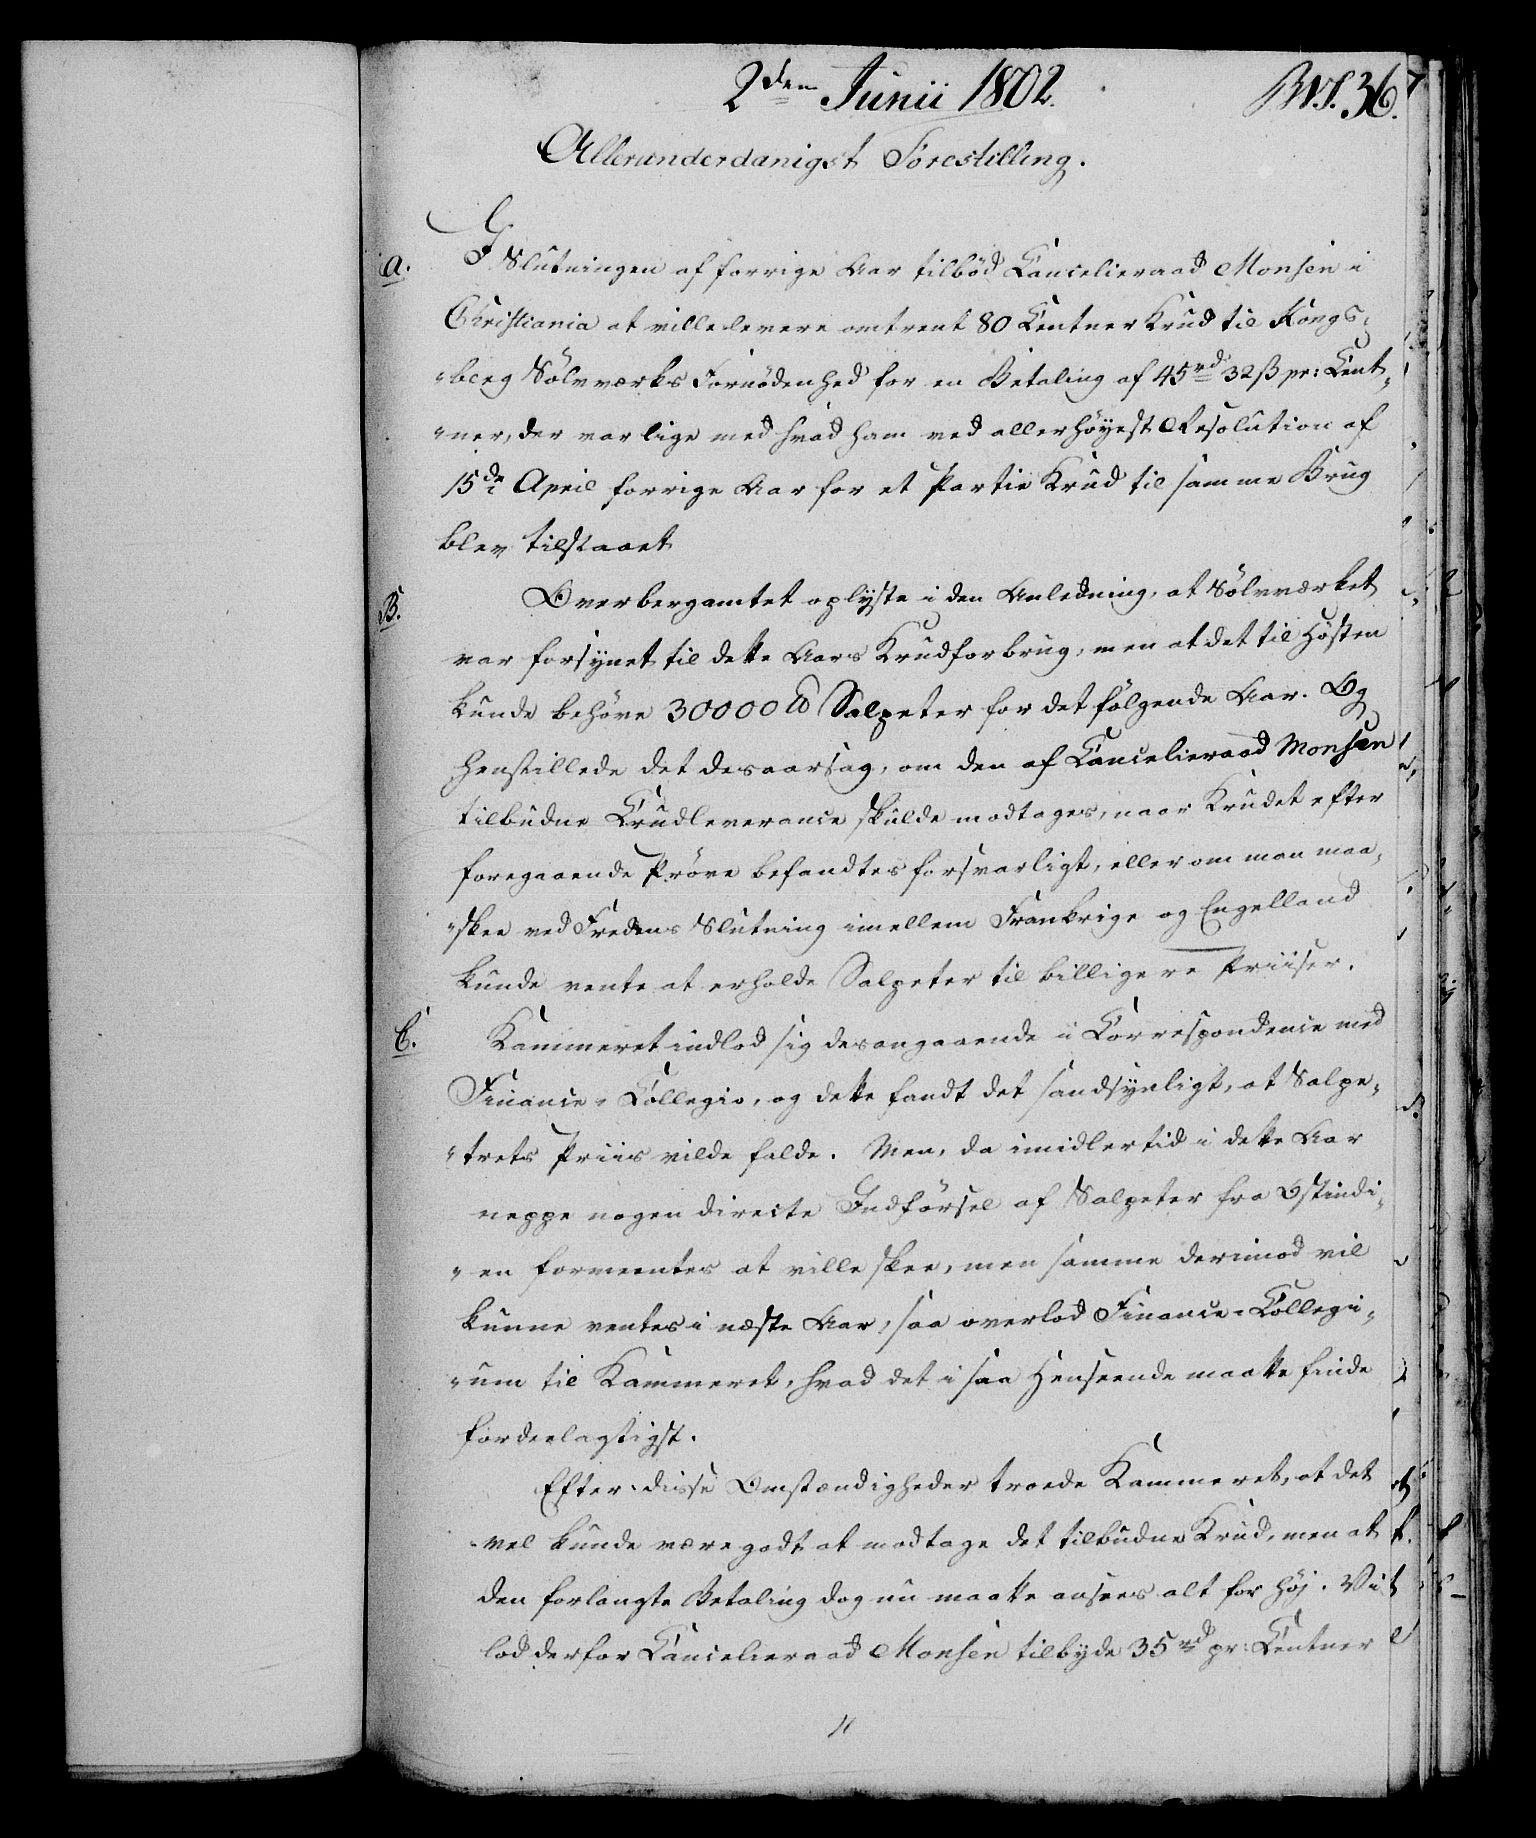 2den Junii 1802.
No. 36.
Allerunderdanigst Forestilling.
a.
I Slutningen af forrige Aar tilbød Cancelieraad Monsen i
Christiania at ville levere omtrent 80 Centner Krud til Kongs-
"berg Sølvværks Fornødenhed for en Betaling af 45 rd 32 ß pr: Cent-
"ner, der var lige med hvad ham ved allerhøyest Resolution af
15de April forrige Aar for et Partie Krud til samme Brug
blev tilstaaet
B.
Overbergamtet oplyste i den Anledning, at Sølvværket
var forsynet til dette Aars Krudforbrug, men at det til Høsten
kunde behøve 30000 ℔ Salpeter for det følgende Aar. Og
henstillede det desaarsag, om den af Cancelieraad Monsen
tilbudne Krudleverance skulde modtages, naar Krudet efter
foregaaende Prøve befandtes forsvarligt, eller om man maa-
"skee ved Fredens Slutning imellem Frankrige og Engelland
kunde vente at erholde Salpeter til billigere Priiser.
C.
Kammeret indlod sig desangaaende i Correspondence med
Finance-Collegio, og dette fandt det sandsynligt, at Salpe-
"trets Priis vilde falde. Men, da imidlertid i dette Aar
neppe nogen directe Indførsel af Salpeter fra Ostindi-
"en formeentes at ville skee, men samme derimod vil
kunne ventes i næste Aar, saa overlod Finance-Collegi-
"um til Kammeret, hvad det i saa Henseende maatte finde
fordeelagtigst.
Efter disse Omstændigheder troede Kammeret, at det
vel kunde være godt at modtage det tilbudne Krud, men at
den forlangte Betaling dog nu maatte ansees alt for høj. Vi
lod derfor Cancelieraad Monsen tilbyde 35 rd pr: Centner